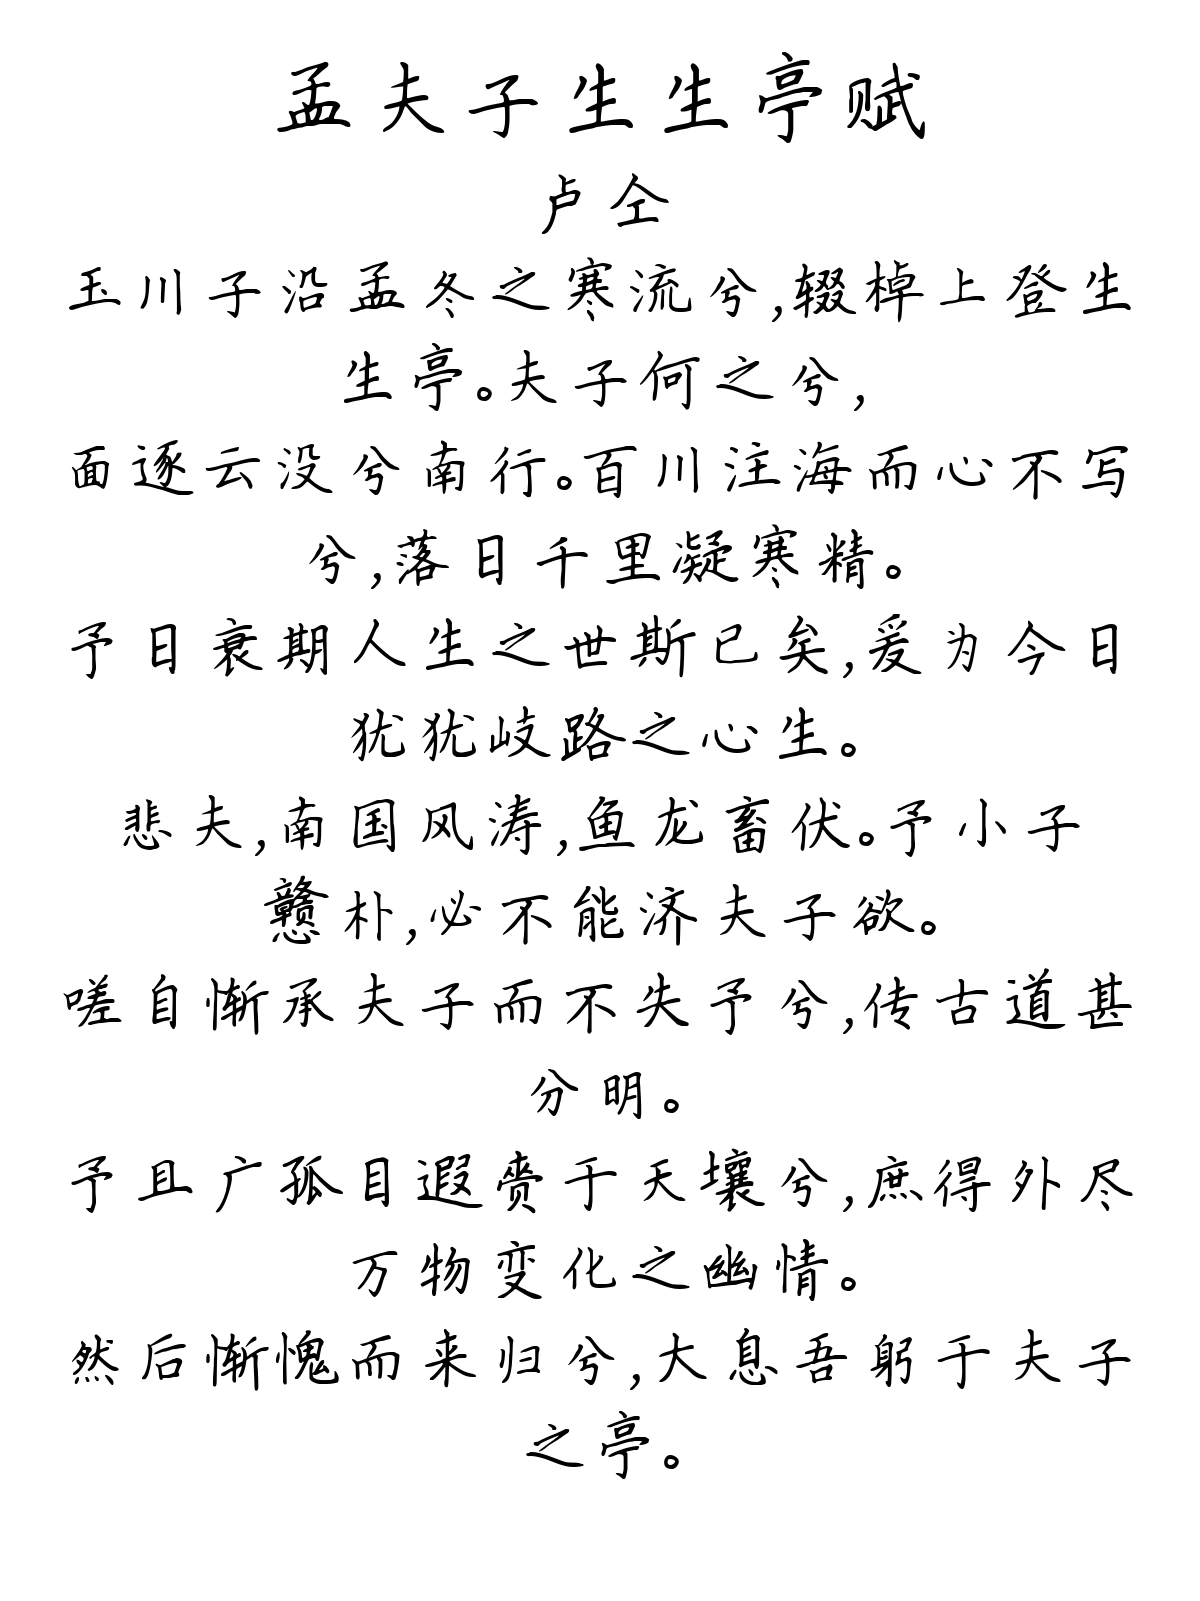 孟夫子生生亭赋
卢仝
玉川子沿孟冬之寒流兮,辍棹上登生
生亭。夫子何之兮,
面逐云没兮南行。百川注海而心不写
兮,落日千里凝寒精。
予日衰期人生之世斯已矣,爰为今日
犹犹岐路之心生。
悲夫,南国风涛,鱼龙畜伏。予小子
戆朴,必不能济夫子欲。
嗟自惭承夫子而不失予兮,传古道甚
分明。
予且广孤目遐赍于天壤兮,庶得外尽
万物变化之幽情。
然后惭愧而来归兮,大息吾躬于夫子
之亭。